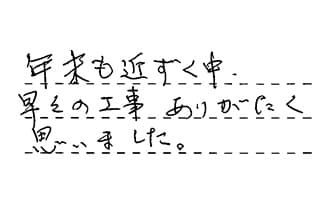 年末も近ずく中、
早々の工事 ありがたく
思いました。